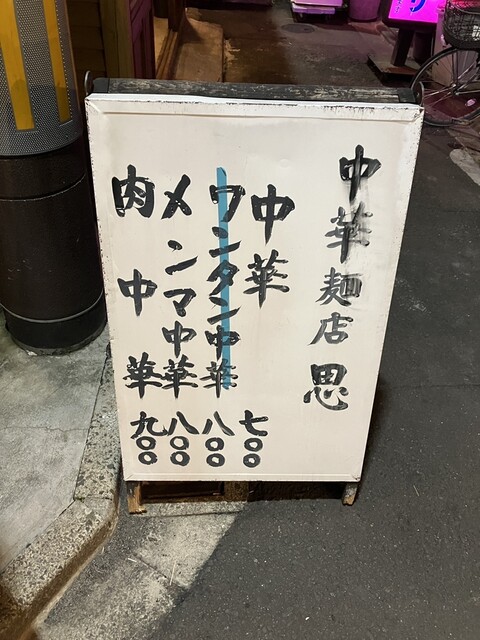 中華麺店 思
中華 七〇〇
ワンタン中華 八〇〇
メンマ中華 八〇〇
肉中華 九〇〇